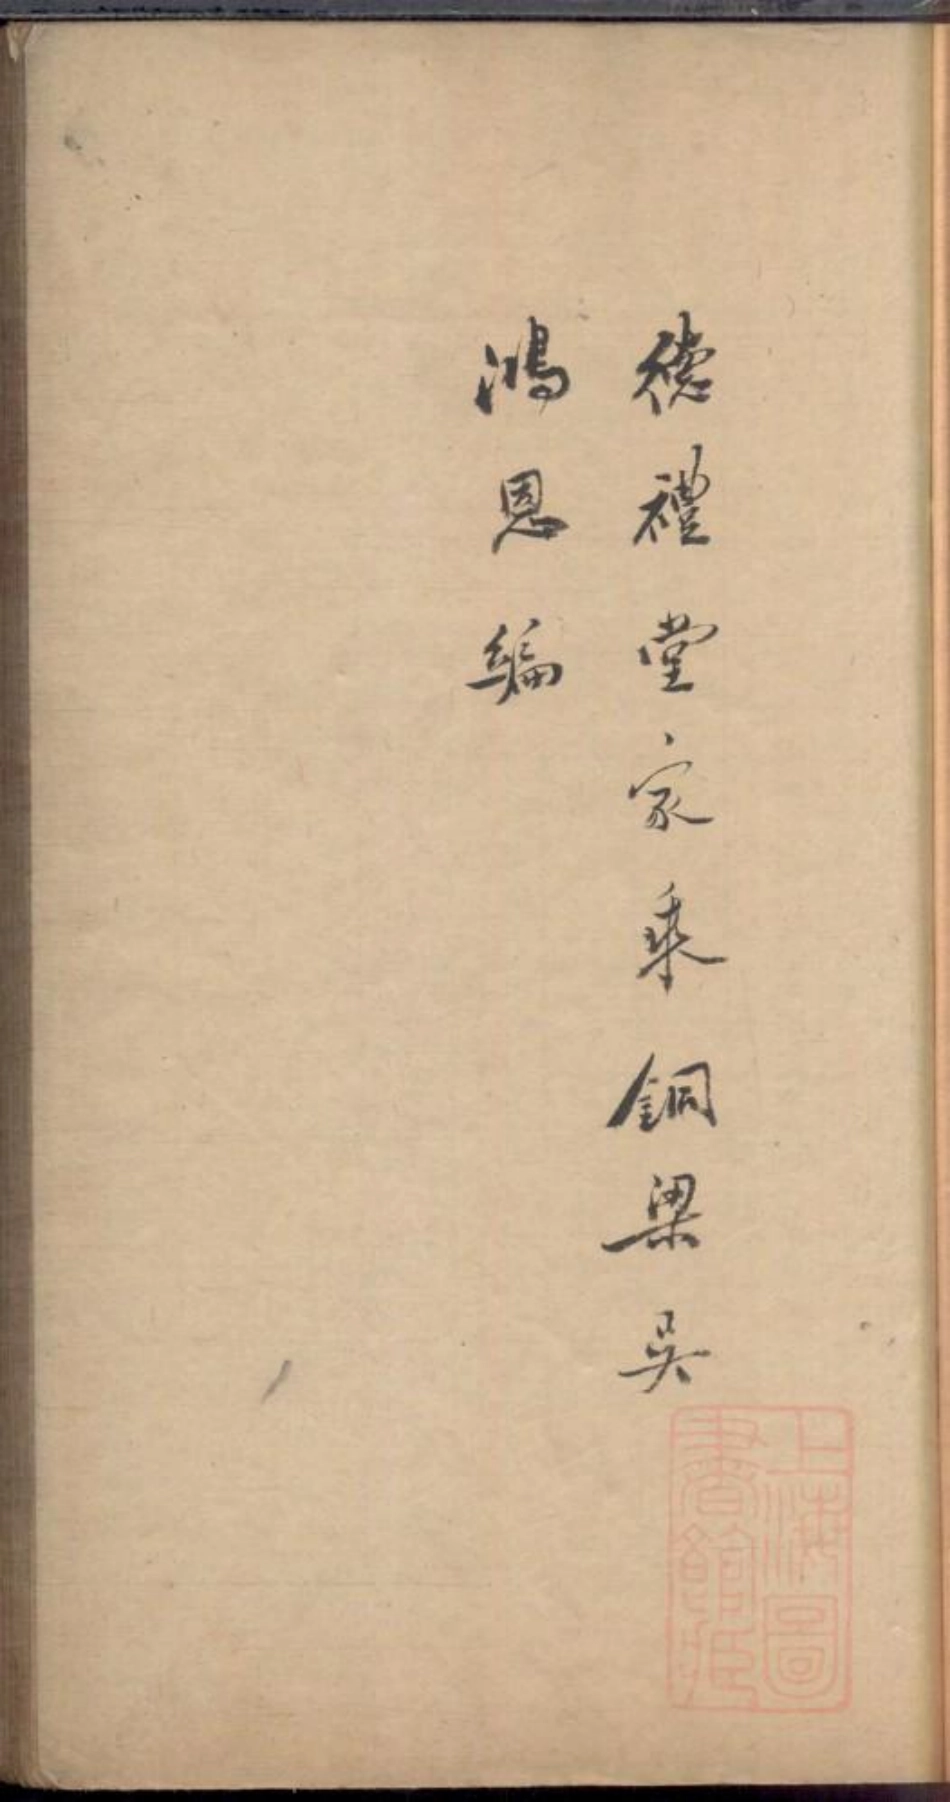 德禮堂家乘銅梁吳
鴻恩編
上海圖
書館藏